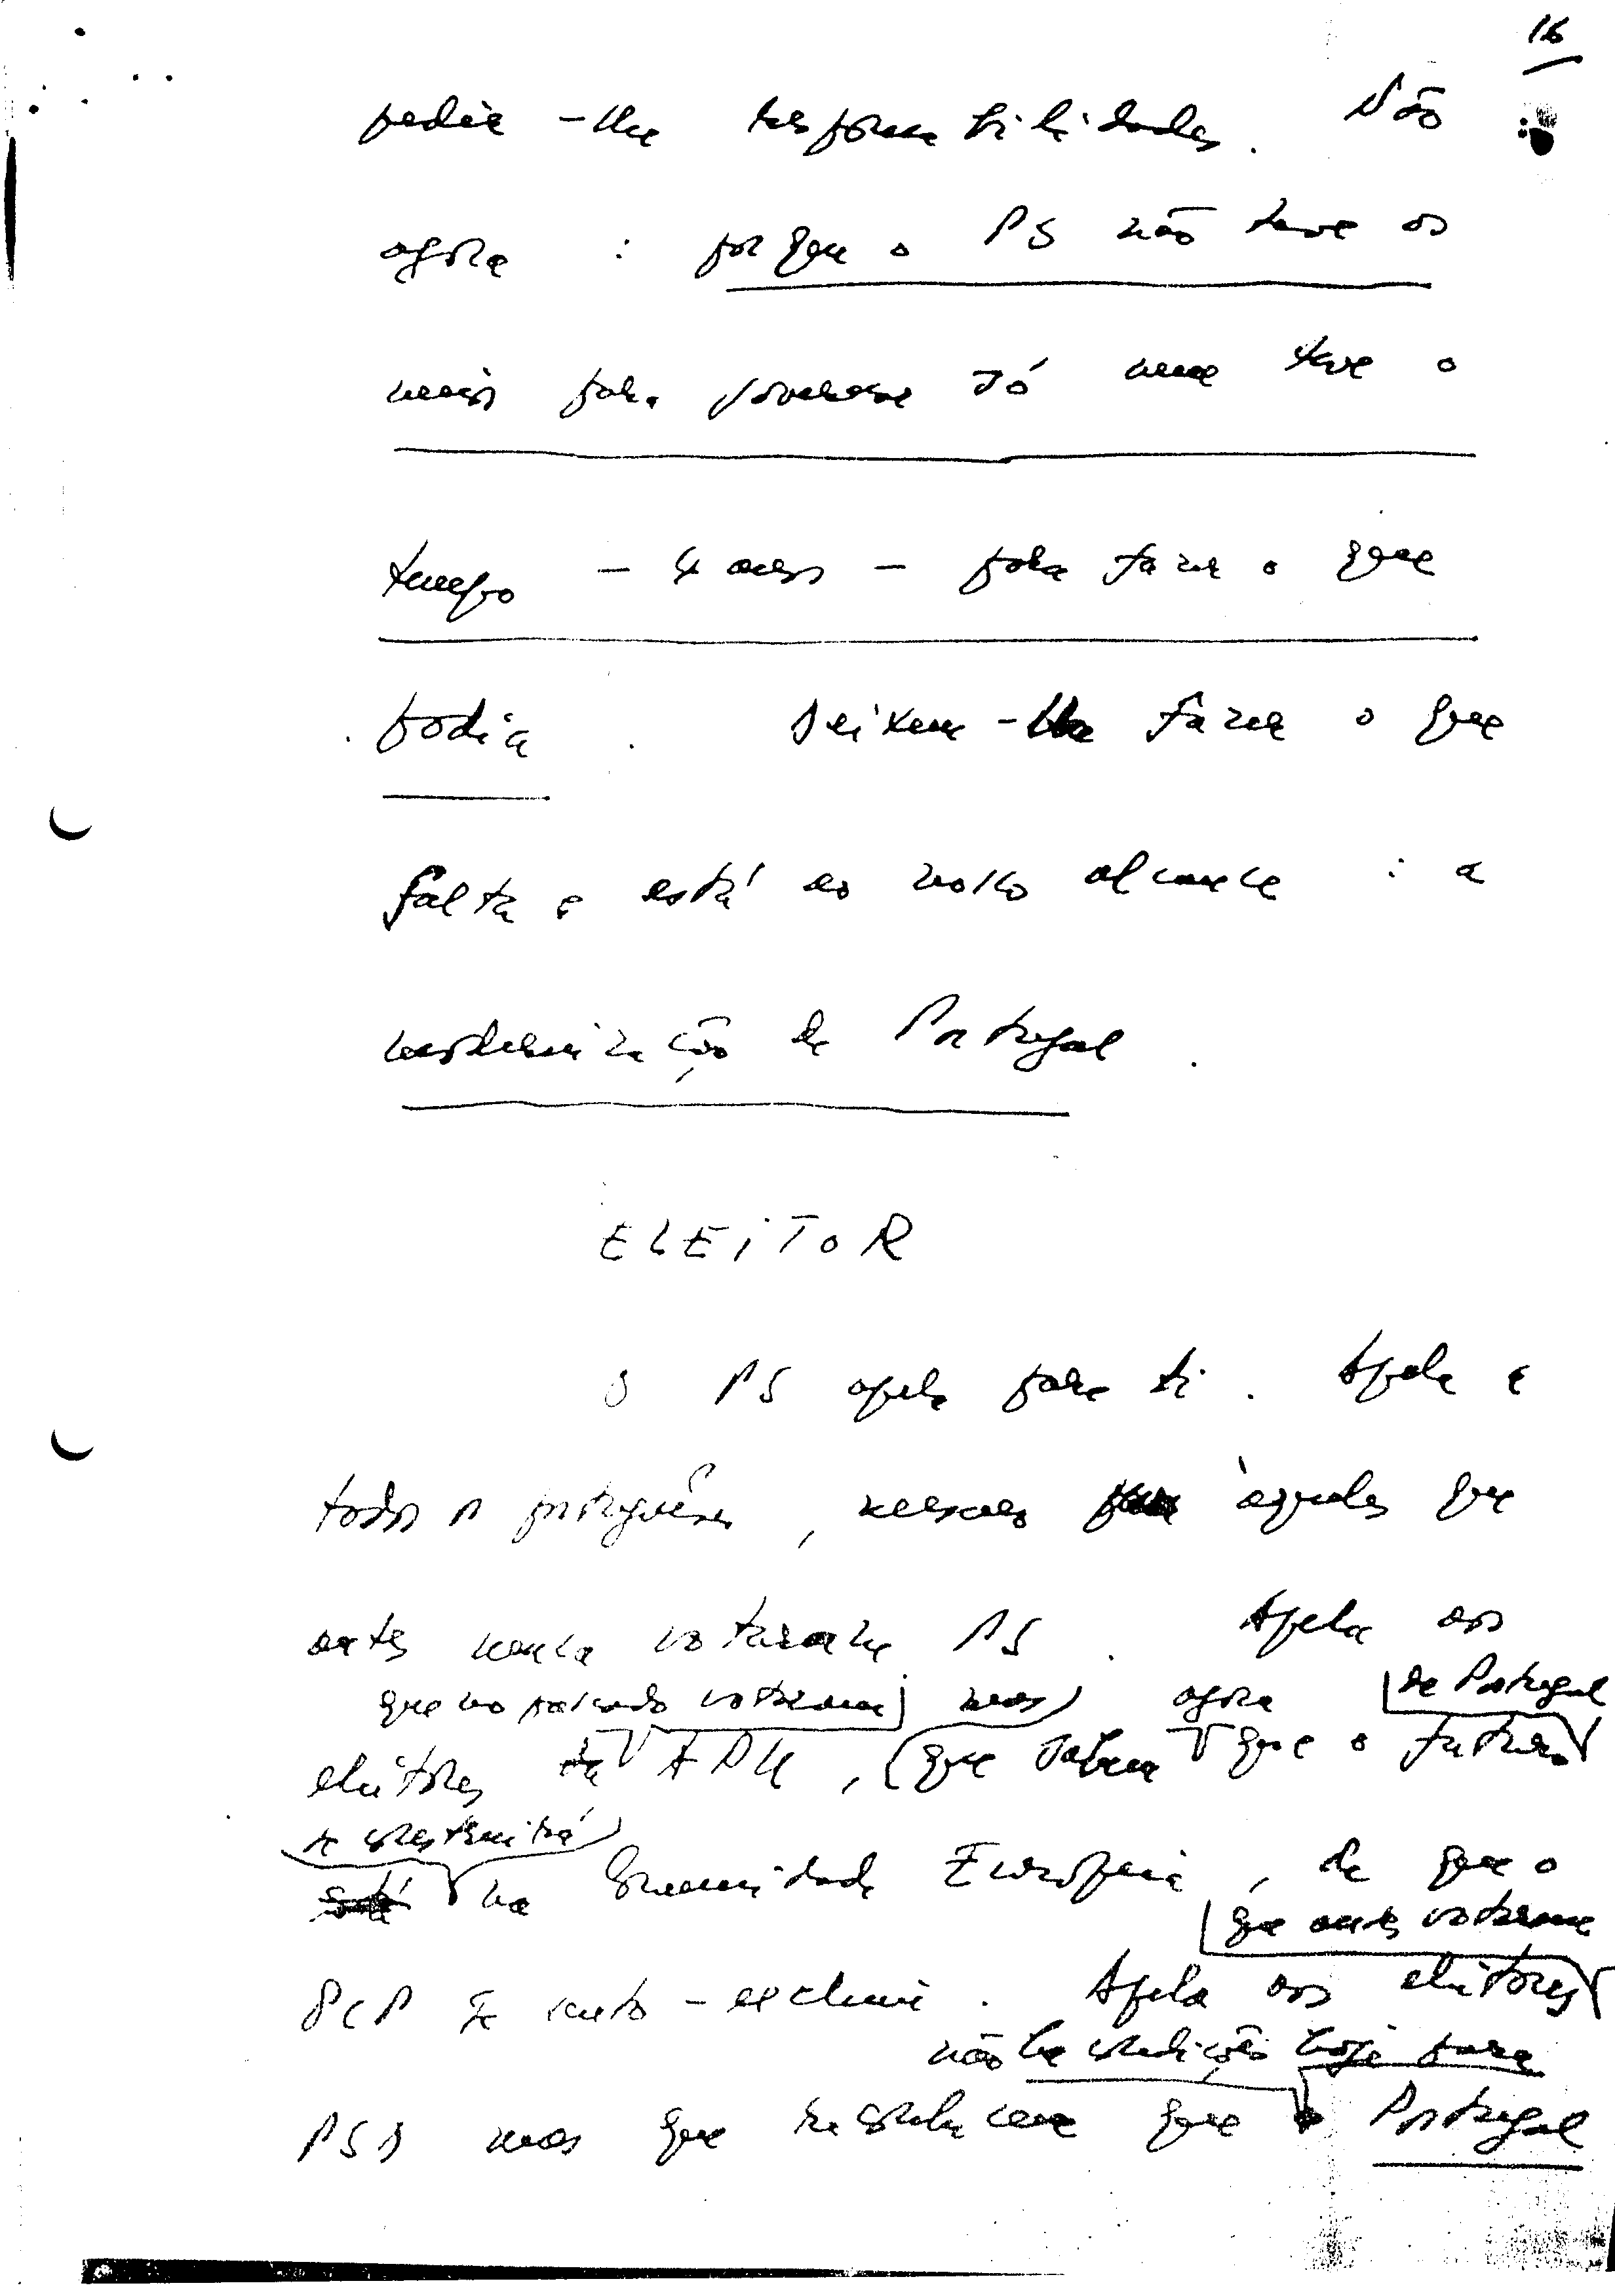 16
pedir-lhe responsabilidades. Não
agora : porque o PS não teve os
meios para governar só nem teve o
tempo – 4 anos – para fazer o que
podia. Deixem-lhe fazer o que
falta e está ao nosso alcance : a
modernização de Portugal.
ELEITOR
O PS apela para ti. Apela a
todos os portugueses, mesmo àqueles que
antes nunca votaram PS. Apela aos
que no passado votaram mas agora de Portugal
eleitores APU, que sabem que o futuro
se construirá
na Comunidade Europeia, de que o
que antes votaram
PCP se auto-exclui. Apela aos eleitores
não há condições hoje para
PSD mas que reconhecem que Portugal